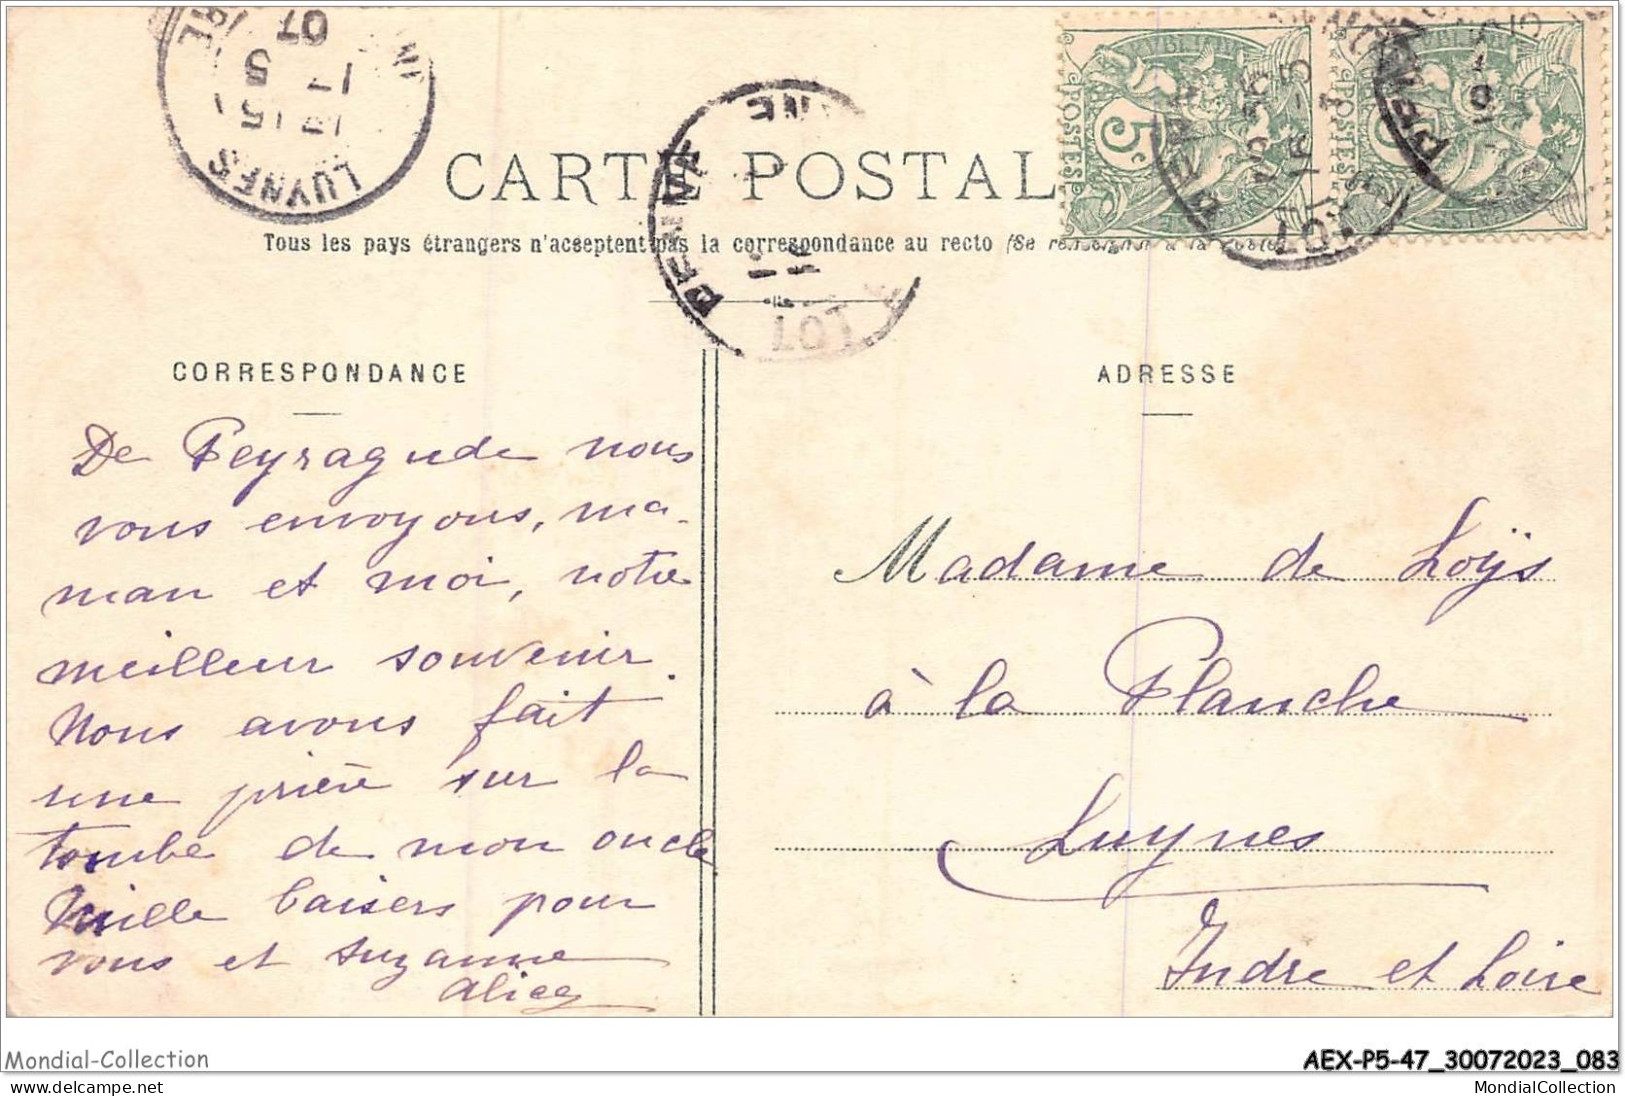 CARTE POSTALE
Tous les pays étrangers n'acceptent pas la correspondance au recto (Se renseigner à la Poste)
LUYNES
17 5
07
PENNE
LOT
POSTES
5c
POSTES
CORRESPONDANCE
De Peyragude nous
vous envoyons, ma-
man et moi, notre
meilleur souvenir.
Nous avons fait
une prière sur la
tombe de mon oncle
Mille baisers pour
vous et Suzanne
Alice
ADRESSE
Madame de Loÿs
à la Planche
Luynes
Indre et Loire
Mondial-Collection
AEX-P5-47_30072023_083
MondialCollection